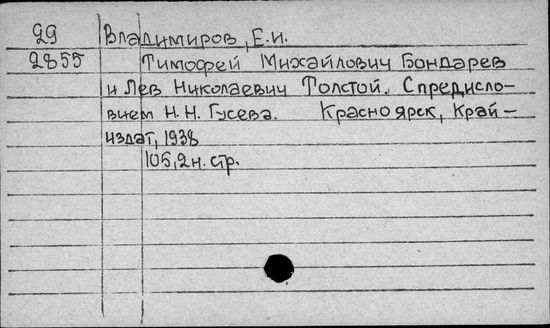 29 Владимиров, Е.И.
2855 Тимофей Михайлович Бондарев
и Лев Николаевич Толстой. С предисло-
вием Н.Н. Гусева. Красноярск, Край-
издат, 1938
105,2н. стр.